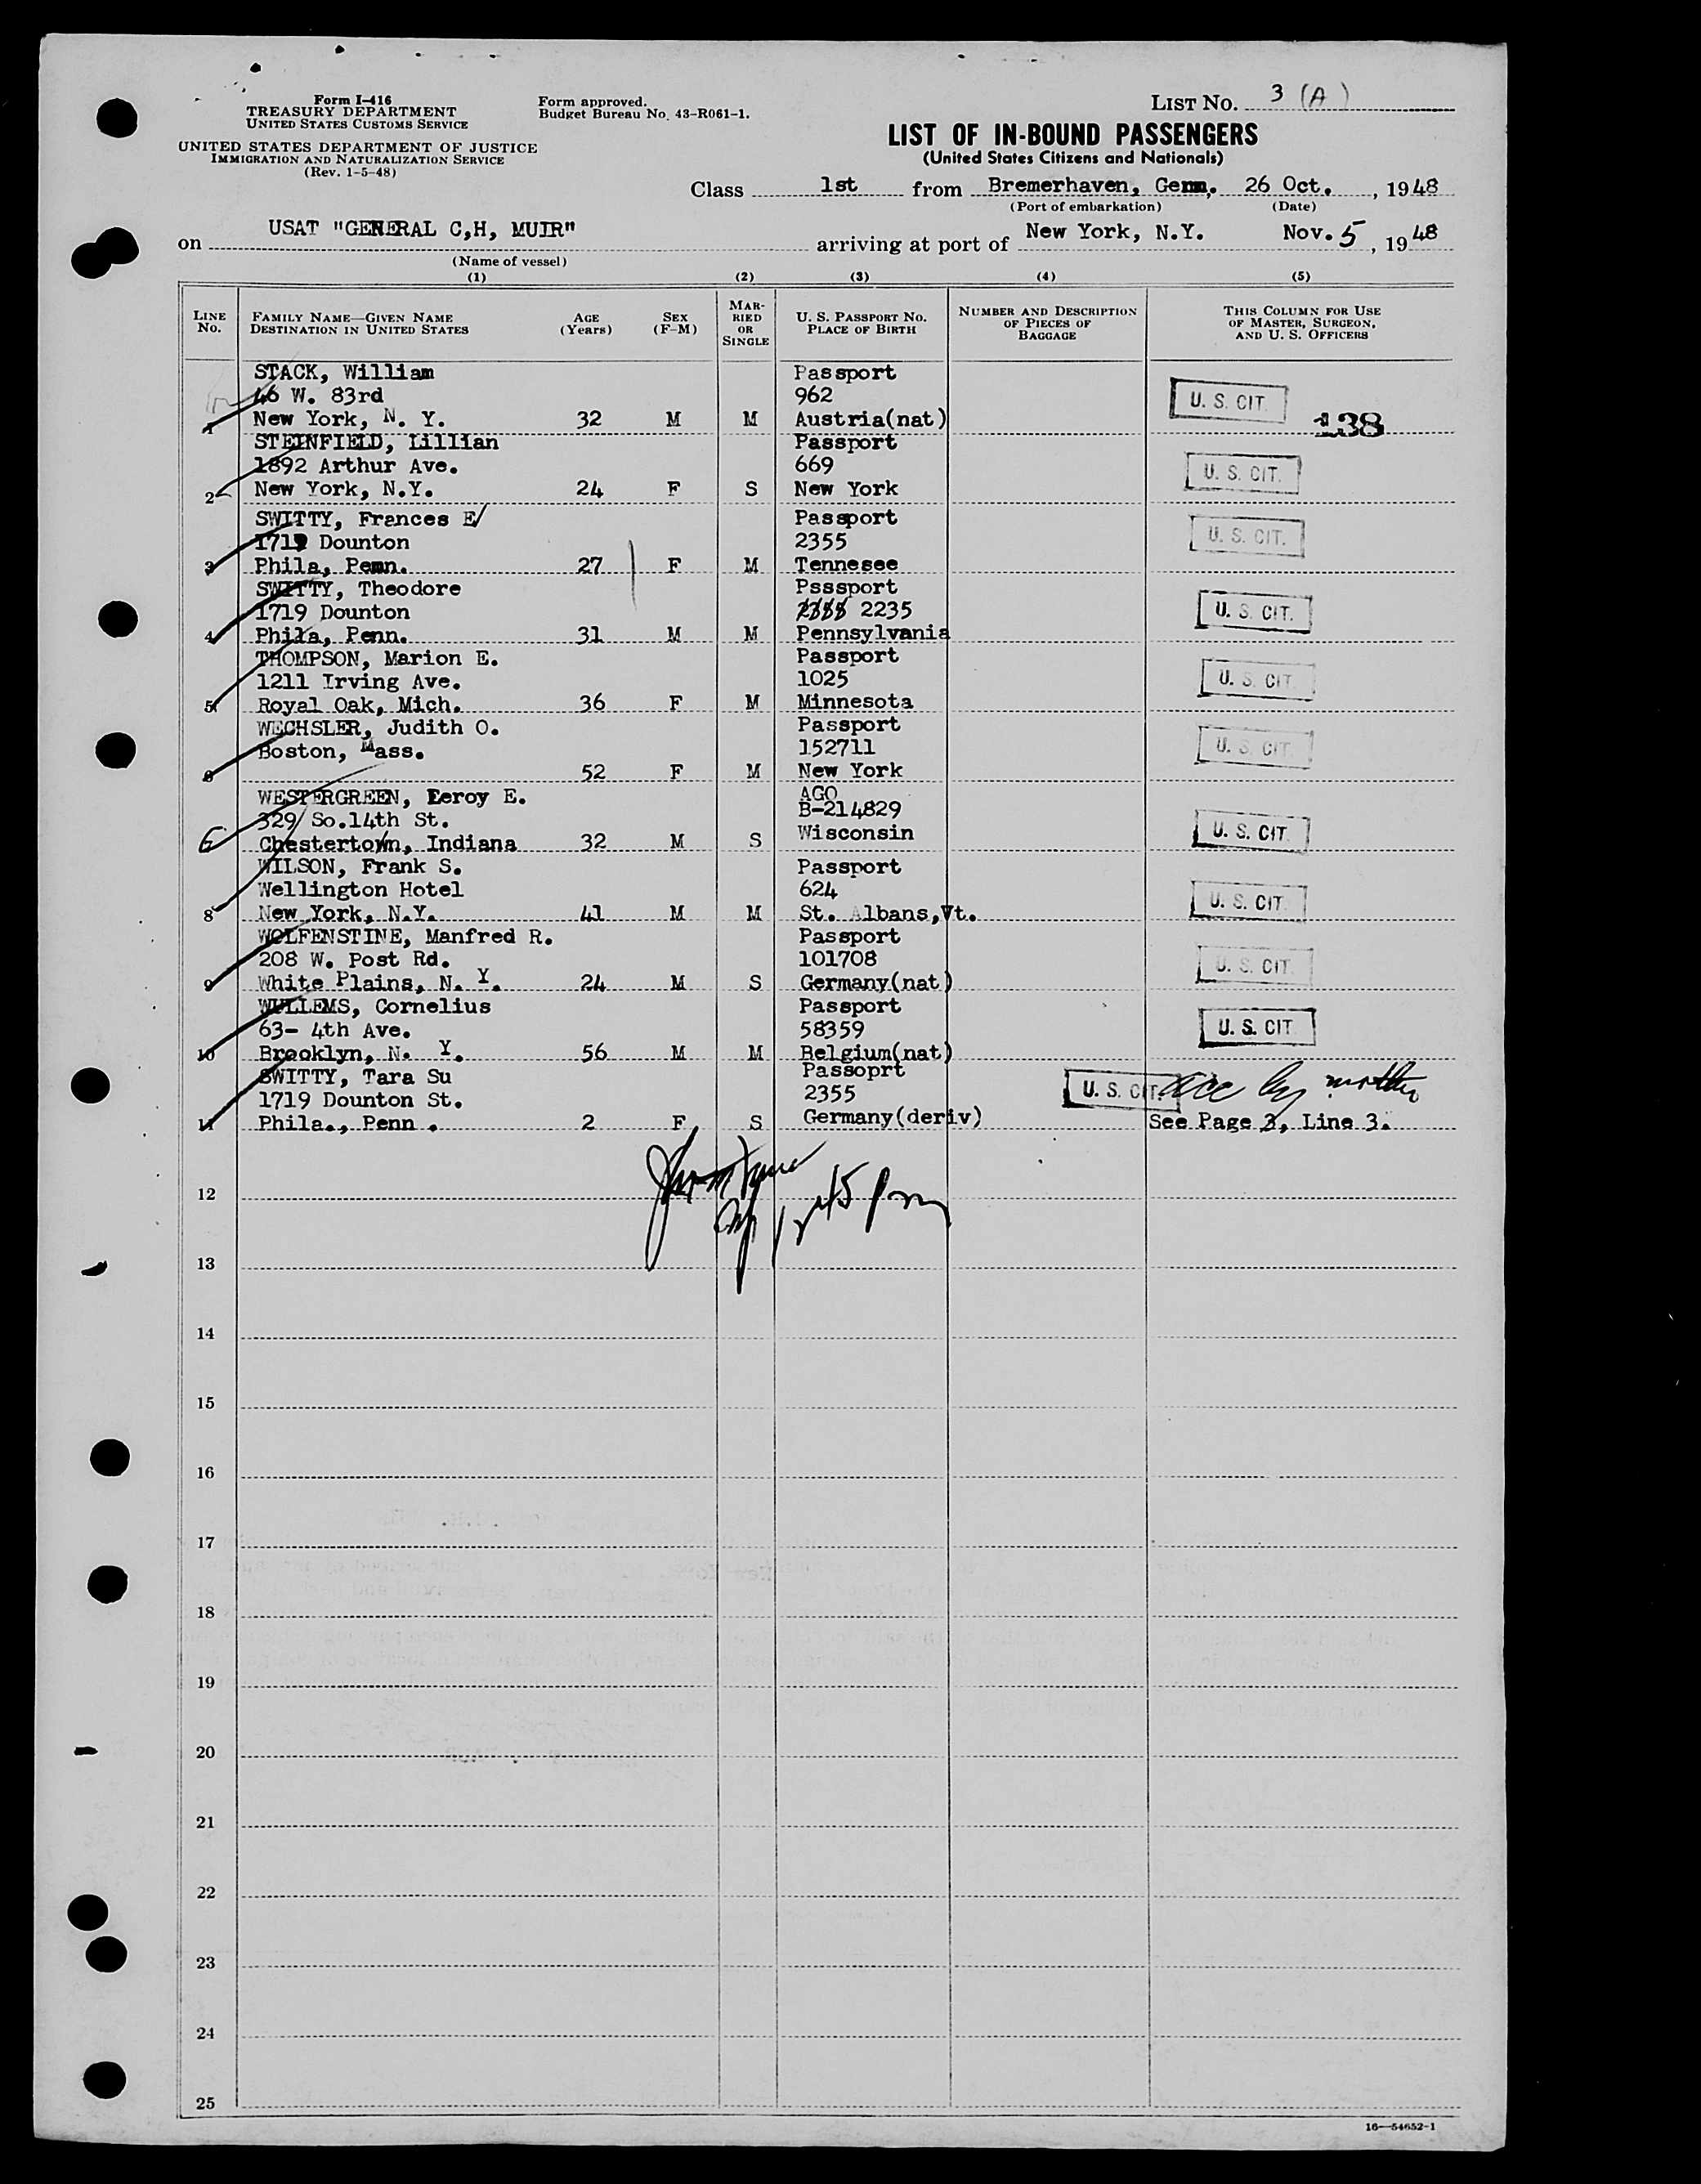 Form I-416
TREASURY DEPARTMENT
UNITED STATES CUSTOMS SERVICE
UNITED STATES DEPARTMENT OF JUSTICE
IMMIGRATION AND NATURALIZATION SERVICE
(Rev. 1-5-48)
Form approved.
Budget Bureau No. 43-R061-1.
LIST NO. 3 (A)
LIST OF IN-BOUND PASSENGERS
(United States Citizens and Nationals)
Class 1st from Bremerhaven, Germ, 26 Oct. , 1948
(Port of embarkation) (Date)
on USAT "GENERAL C,H, MUIR" arriving at port of New York, N.Y. Nov. 5, 1948
(Name of vessel)
(1) (2) (3) (4) (5)
LINE No. FAMILY NAME—GIVEN NAME DESTINATION IN UNITED STATES AGE (Years) SEX (F-M) MARRIED OR SINGLE U. S. PASSPORT NO. PLACE OF BIRTH NUMBER AND DESCRIPTION OF PIECES OF BAGGAGE THIS COLUMN FOR USE OF MASTER, SURGEON, AND U. S. OFFICERS
STACK, William Passport
46 W. 83rd 962 U. S. CIT.
1 New York, N. Y. 32 M M Austria(nat) 138
STEINFIELD, Lillian Passport
1892 Arthur Ave. 669 U. S. CIT.
2 New York, N.Y. 24 F S New York
SWITTY, Frances E Passport
1719 Dounton 2355 U. S. CIT.
3 Phila, Penn. 27 F M Tennesee
SWITTY, Theodore Psssport
1719 Dounton 2355 2235 U. S. CIT.
4 Phila, Penn. 31 M M Pennsylvania
THOMPSON, Marion E. Passport
1211 Irving Ave. 1025 U. S. CIT
5 Royal Oak, Mich. 36 F M Minnesota
WECHSLER, Judith O. Passport
Boston, Mass. 152711 U. S. CIT
6 52 F M New York
WESTERGREEN, Leroy E. AGO
329 So.14th St. B-214829 U. S. CIT
Chestertown, Indiana 32 M S Wisconsin
WILSON, Frank S. Passport
Wellington Hotel 624 U. S. CIT
8 New York, N.Y. 41 M M St. Albans,Vt.
WOLFENSTINE, Manfred R. Passport
208 W. Post Rd. 101708 U. S. CIT
9 White Plains, N. Y. 24 M S Germany(nat)
WULLEMS, Cornelius Passport
63- 4th Ave. 58359 U. S. CIT
10 Brooklyn, N. Y. 56 M M Belgium(nat)
SWITTY, Tara Su Passoprt
1719 Dounton St. 2355 U. S. CIT. acc by mother
11 Phila., Penn . 2 F S Germany(deriv) See Page 3, Line 3.
12
13
14
15
16
17
18
19
20
21
22
23
24
25
16—54652-1